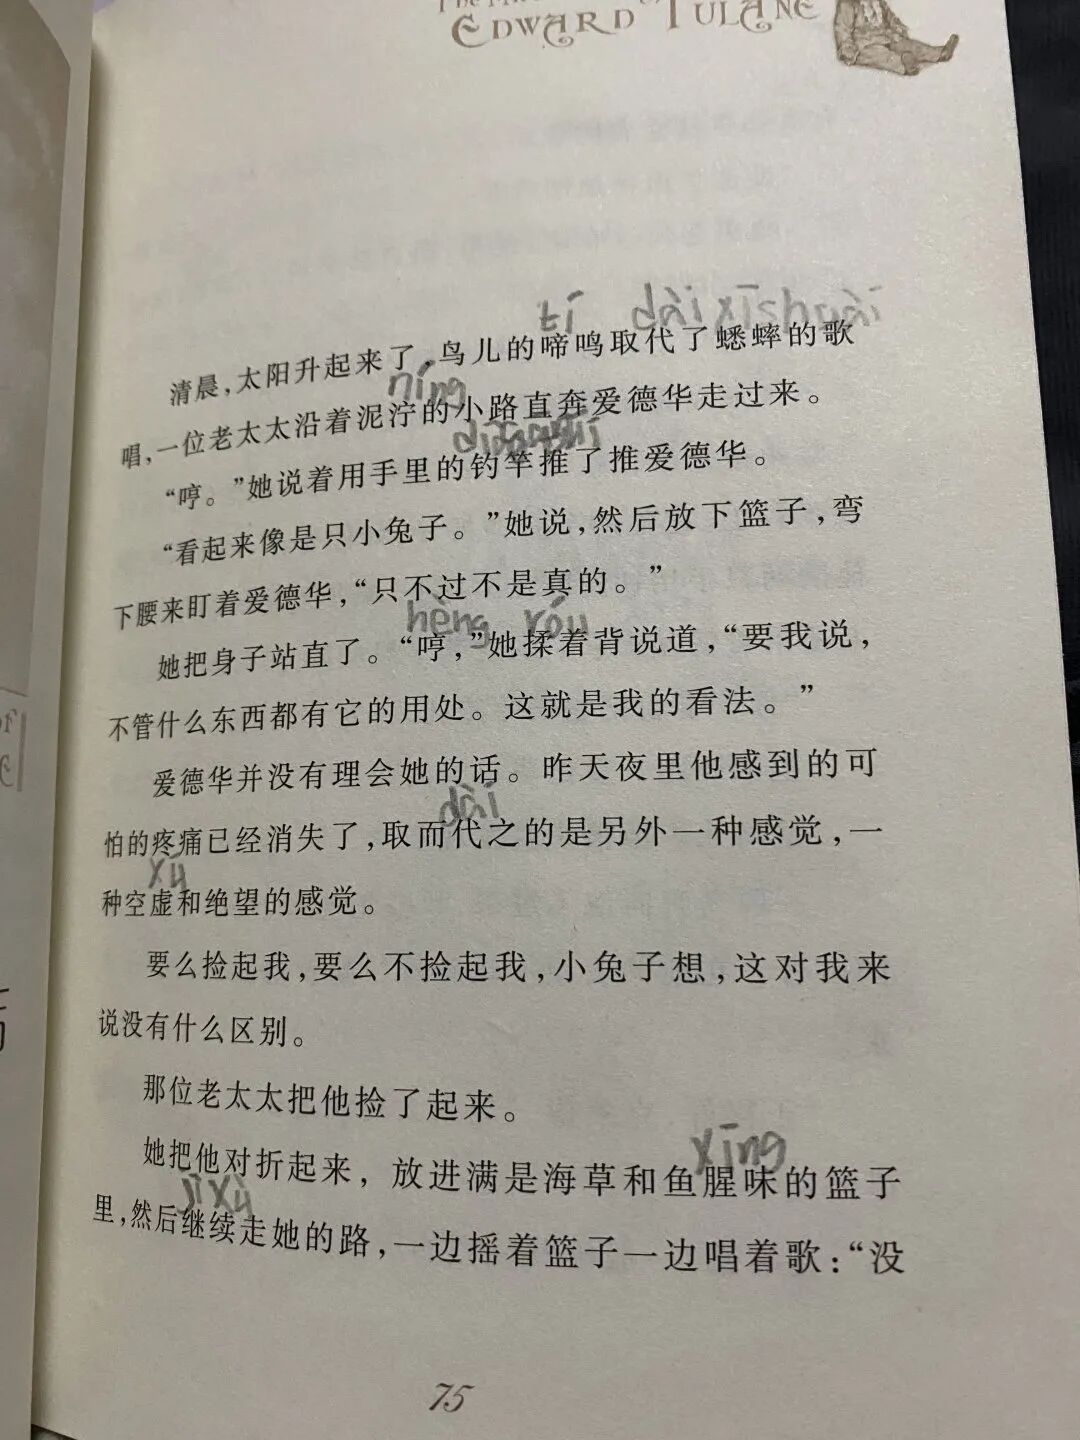 EDWARD TULANE
tí dài xī
清晨，太阳升起来了，鸟儿的啼鸣取代了蟋蟀的歌
níng
唱，一位老太太沿着泥泞的小路直奔爱德华走过来。
“哼。”她说着用手里的钓竿推了推爱德华。
“看起来像是只小兔子。”她说，然后放下篮子，弯
下腰来盯着爱德华，“只不过不是真的。”
hèng róu
她把身子站直了。“哼，”她揉着背说道，“要我说，
不管什么东西都有它的用处。这就是我的看法。”
爱德华并没有理会她的话。昨天夜里他感到的可
dài
怕的疼痛已经消失了，取而代之的是另外一种感觉，一
xū
种空虚和绝望的感觉。
要么捡起我，要么不捡起我，小兔子想，这对我来
说没有什么区别。
那位老太太把他捡了起来。
xīng
她把他对折起来，放进满是海草和鱼腥味的篮子
jì xù
里，然后继续走她的路，一边摇着篮子一边唱着歌：“没
75